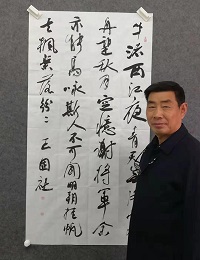 牛渚西江夜青天無
舟望秋月空憶謝將軍余
亦能高咏斯人不可聞明朝挂帆
去楓葉落紛々 王国社